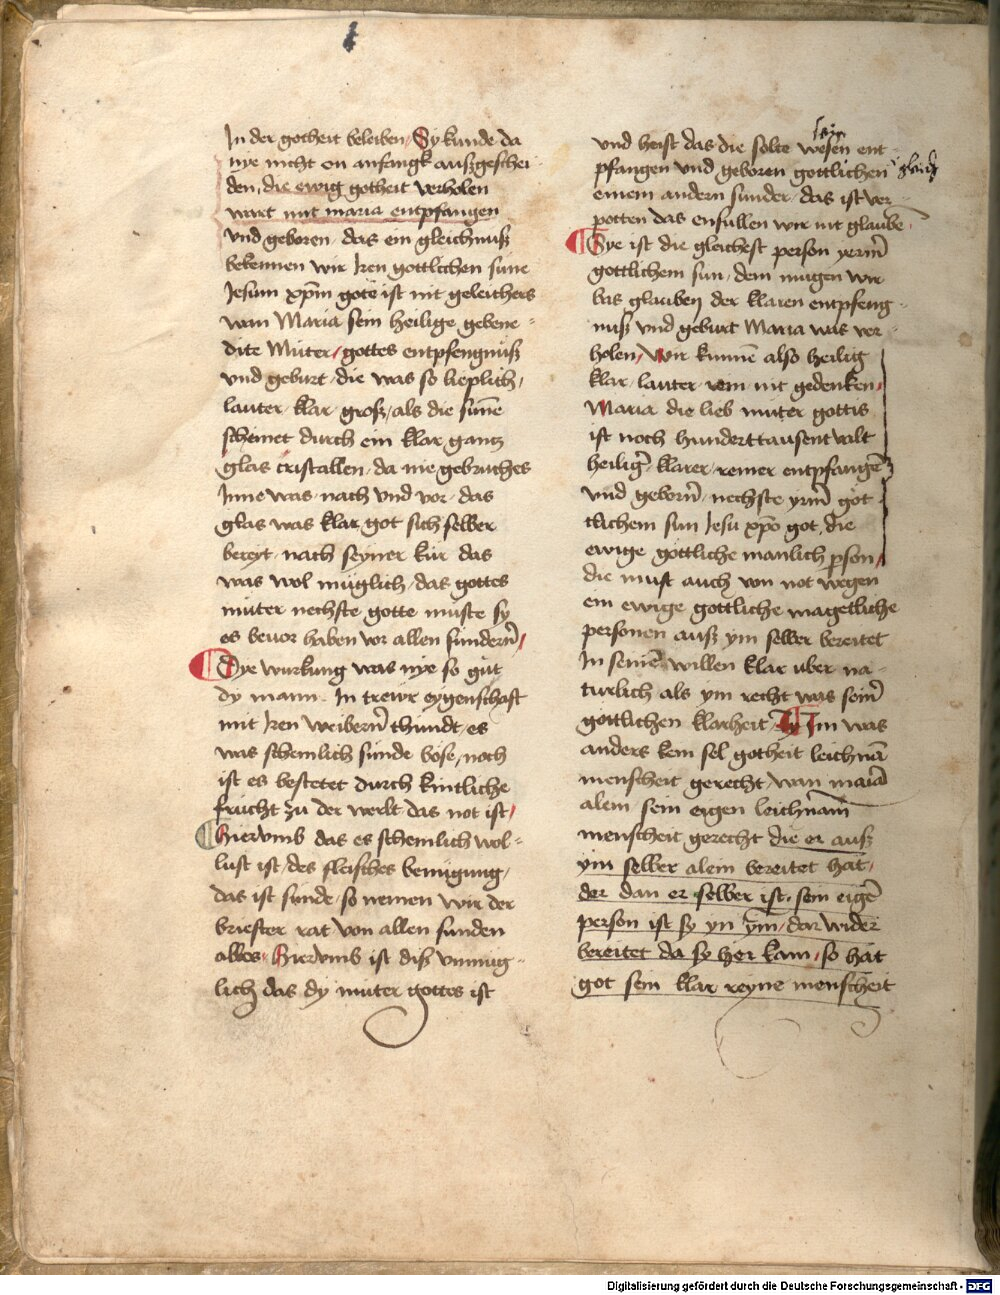 In der gotheit beleiben Sy kunde da
nye nicht on anfangk außgeschei
den, die ewig gotheit verholen
wart mit maria entpfangen
vnd geboren das ein gleichnuß
bekennen wir Iren gottlichen sune
Jesum xpm gote ist nit geleichers
wan Maria sein heilige gebene
dite Muter / gottes entpfengnuß
vnd geburt die was so lieplich,
lauter klar groß als die sunne
scheinet durch ein klar gantz
glas cristallen da nie gebruches
Inne was nach vnd vor das
glas was klar got sich selber
bereyt nach seyner kür das
was wol müglich das gottes
muter nechste gotte muste sy
es beuor haben vor allen sundern /
Dye wurkung was nye so gut
dy mann In trewr eygenschaft
mit Iren weibern thundt es
was schemlich sunde böse, noch
ist es bestetet durch kintliche
frucht zu der werlt das not ist /
Hiervmb das es schemlich wol
lust ist des fleisches benügung,
das ist sunde so nemen wir der
briester rat von allen sunden
ablos Hiervmb ist diß vnmüg
lich das dy muter gottes ist
vnd heist das die solte wesen ent
pfangen vnd geboren gottlichen
einem andern sunder das ist ver
potten das ensullen wir nit glaube
Sye ist die gleichest person yerm
gottlichem sun dem mugen wir
bas glauben der klaren entpfeng
nuß vnd geburt Maria was ver
holen, Wir kunnen also heilig
klar lauter rein nit gedenken /
Maria die lieb muter gottis
ist noch hunderttausent valt
heilig klarer reiner entpfangen
vnd geborn nechste yrm got
tlichem sun Jesu xpo got die
ewige gottliche manlich person /
die must auch von not wegen
ein ewige gottliche magetliche
personen auß ym selber bereitet
In seinem willen klar uber na
turlich als ym recht was seiner
gottlichen klarheit Im was
anders kein sel gotheit leichnam
menscheit gerecht wan maria
alein sein eigen leichnam
menscheit gerecht die er auß
ym selber alein bereitet hat,
der dan er selber ist sein eigen
person ist sy yn ym / dar wider
bereitet da sy her kam / so hat
got sein klar reyne menscheit
Digitalisierung gefördert durch die Deutsche Forschungsgemeinschaft - DFG